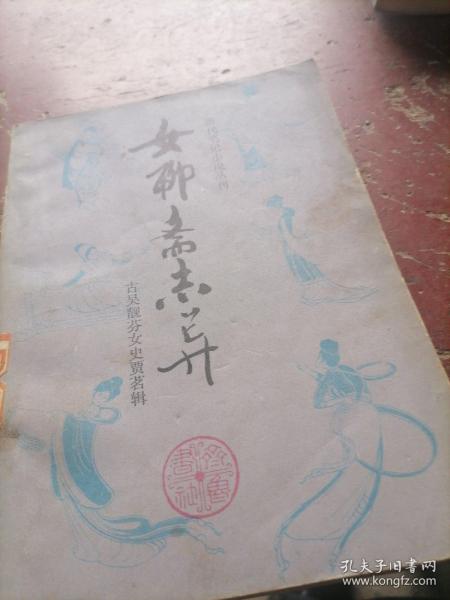 女聊斋志异
古吴靓芬女史贾茗辑
齐鲁書社
孔夫子旧书网
www.kongfz.com